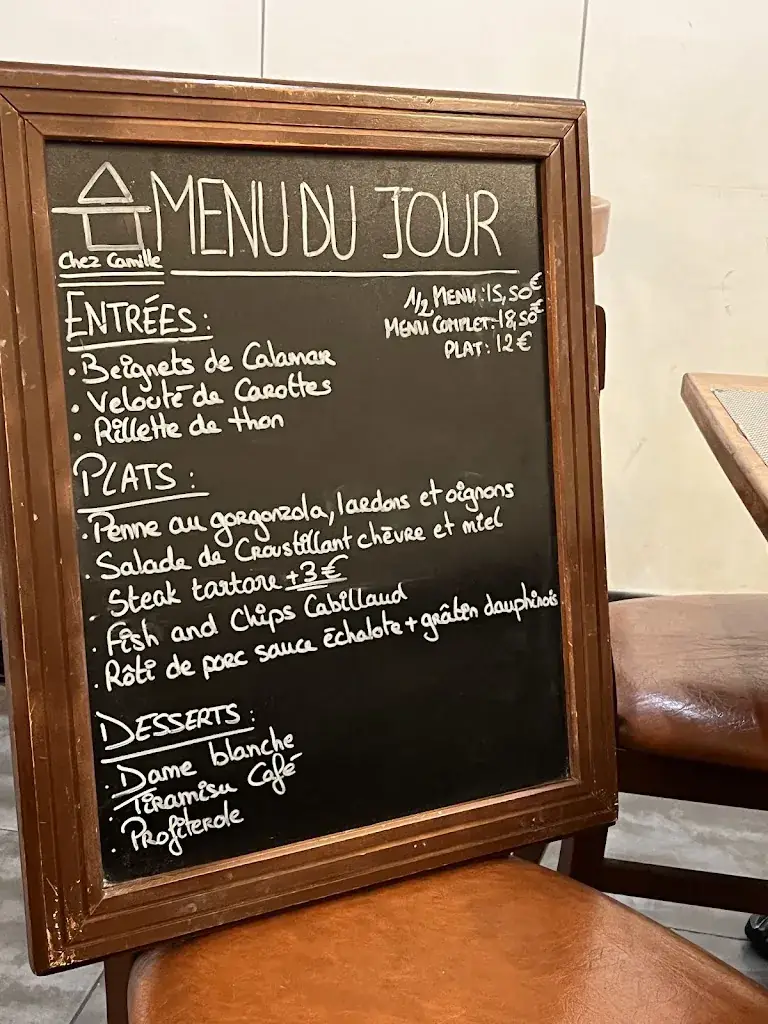 MENU DU JOUR
Chez Camille
1/2 MENU : 15,50€
MENU COMPLET : 18,50€
PLAT : 12€
ENTRÉES :
• Beignets de Calamar
• Velouté de Carottes
• Rillette de thon
PLATS :
• Penne au gorgonzola, lardons et oignons
• Salade de Croustillant chèvre et miel
• Steak tartare +3€
• Fish and Chips Cabillaud
• Rôti de porc sauce échalote + gratin dauphinois
DESSERTS :
• Dame blanche
• Tiramisu Café
• Profiterole